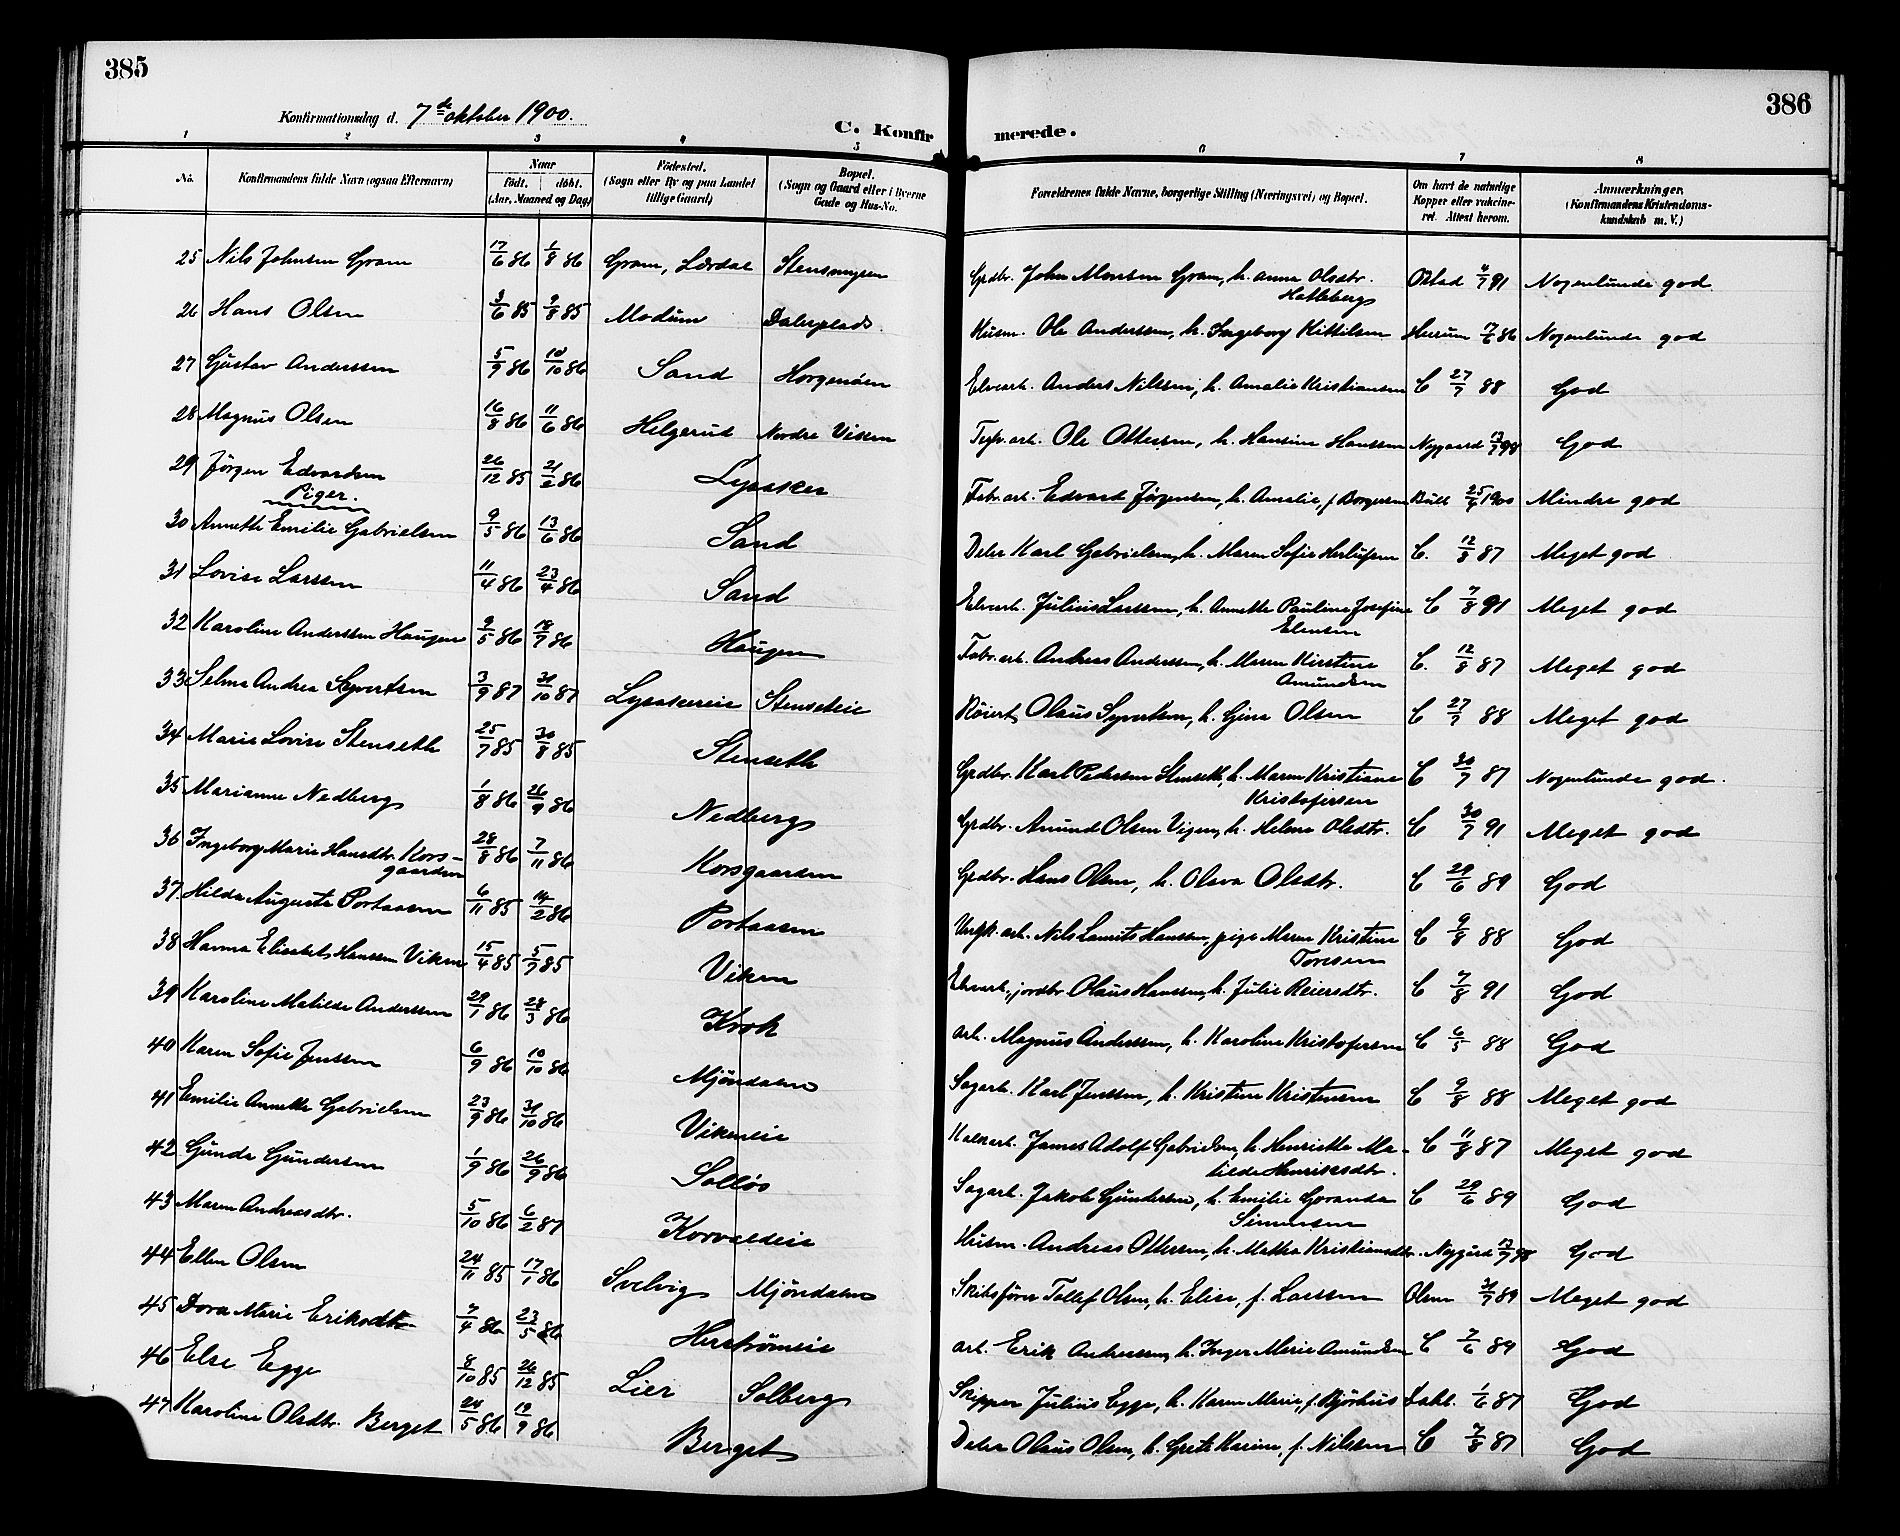 385
386
Konfirmationsdag d. 7de oktober 1900.
C. Konfirmerede.
1 2 3 4 5 6 7 8
No.
Konfirmandens fulde Navn (ogsaa Efternavn)
Naar
födt. | döbt.
(Aar, Maaned og Dag)
Födested.
(Sogn eller By og paa Landet
tillige Gaard)
Bopæl.
(Sogn og Gaard eller i Byerne
Gade og Hus-No.
Forældrenes fulde Navne, borgerlige Stilling (Næringsvei) og Bopæl.
Om havt de naturlige
Kopper eller vakcine-
ret. Attest herom.
Anmærkninger.
(Konfirmandens Kristendoms-
kundskab m. V.)
25 Nils Johnsen Gram 17/6 86 1/8 86 Gram, Lærdal Stensmyren Grdbr. John Monsen Gram, h. Anna Olsdtr. Hatleberg 4/7 91 Nogenlunde god.
26 Hans Olsen 3/6 85 9/8 85 Modum Dalerplads Husm. Ole Anderssen, h. Ingeborg Kittilsen Hurum 17/6 86 Nogenlunde god
27 Gustav Anderssen 5/9 86 10/10 86 Sand Horgenöen Elvearb. Anders Nilssen, h. Amalie Kristiansen C 27/7 88 God
28 Magnus Olsen 16/8 86 11/6 86 Helgerud Nordre Viken Teglv. arb. Ole Ottersen, h. Hansine Hanssen Nygaard 12/7 98 God
29 Jörgen Edvardsen 26/12 85 21/2 86 Lysaker Fabr. arb. Edvard Jörgensen, h. Amalie, f. Borgersen Bull 25/6 1900 Mindre god
Piger.
30 Annette Emilie Gabrielsen 9/5 86 13/6 86 Sand Deler Karl Gabrielsen, h. Maren Sofie Herlufsen C. 12/8 87 Meget god
31 Lovise Larssen 11/4 86 23/4 86 Sand Elvearb. Julius Larssen, h. Annette Pauline Josefine Elensen C 7/8 91 Meget god
32 Karoline Anderssen Haugen 9/5 86 18/7 86 Haugen Fabr. arb. Andreas Anderssen, h. Maren Kirstine Amundsen C. 12/8 87 Meget god
33 Selma Andrea Syvertsen 3/9 87 31/10 87 Lysakereie Stenseteie Röiert Olaus Syvertsen, h. Gina Olsen C 27/7 88 Meget god
34 Marie Lovise Stenseth 25/7 85 30/8 85 Stenseth Grdbr. Karl Pedersen Stenseth, h. Maren Kristiane Kristofersen C 30/7 87 Nogenlunde god.
35 Marianne Nedberg 1/8 86 26/9 86 Nedberg Grdbr. Amund Olsen Vigen, h. Helene Olsdtr. C 30/7 91 Meget god
36 Ingeborg Marie Hansdtr. Kors-
gaarden 28/8 86 7/11 86 Korsgaarden Grdbr. Hans Olsen, h. Olava Olsdtr. C 29/6 89 God
37 Hilda Augusta Portaasen 6/11 85 14/2 86 Portaasen arb. Nils Laurits Hanssen, pige Maren Kristine Toresen C 9/8 88 God
38 Hanna Elisabet Hanssen Viken 15/4 85 5/7 85 Viken Elvearb., jordbr. Olaus Hanssen, h. Julie Reiersdtr. C 7/8 91 God
39 Karoline Matilde Anderssen 29/1 86 28/3 86 Krok arb. Magnus Anderssen, h. Karoline Kristofersen C 6/5 88 God
40 Karen Sofie Jenssen 6/9 86 10/10 86 Mjöndalen Sagarb. Karl Jenssen, h. Kristine Kristensen C 9/8 88 Meget god
41 Emilie Annette Gabrielsen 23/9 86 31/10 86 Vikeneie Kalkarb. James Adolf Gabrielsen, h. Henriette Ma-
tilde Henriksdtr. C 11/8 87 Meget god
42 Gunda Gundersen 1/9 86 26/9 86 Solløs Sagarb. Jakob Gundersen, h. Emilie Goranda Simensen C 29/6 89 God
43 Maren Andreasdtr. 5/10 86 6/2 87 Korvaldeie Husm. Andreas Ottersen, h. Mathea Kristiansdtr. Nygård 12/7 98 God
44 Ellen Olsen 24/11 85 17/1 86 Svelvig Mjöndalen Skibsförer Tollef Olsen, h. Elise, f. Larssen Olsen 31/7 89 Meget god
45 Dora Marie Eriksdtr 7/4 86 23/5 86 Herströmeie arb. Erik Andreassen, h. Inger Marie Amundsen C 7/6 89 God
46 Else Egge 8/10 85 26/12 85 Lier Solberg Skipper Julius Egge, h. Karen Marie, f. Björhus Dahl. 1/6 87 God
47 Karoline Olsdtr. Berget 24/5 86 19/9 86 Berget Deler Olaus Olsen, h. Grete Karine, f. Nilssen C 7/8 87 God